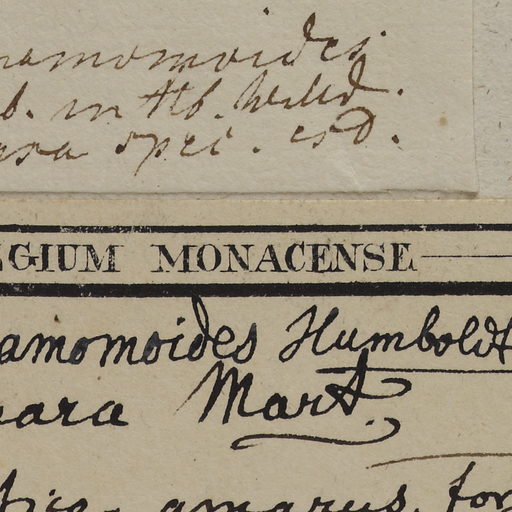 namomoides
b. in Hb. Willd.
ara spec. esd.
GIUM MONACENSE
amomoides Humboldt
ara Mart.
amarus, for